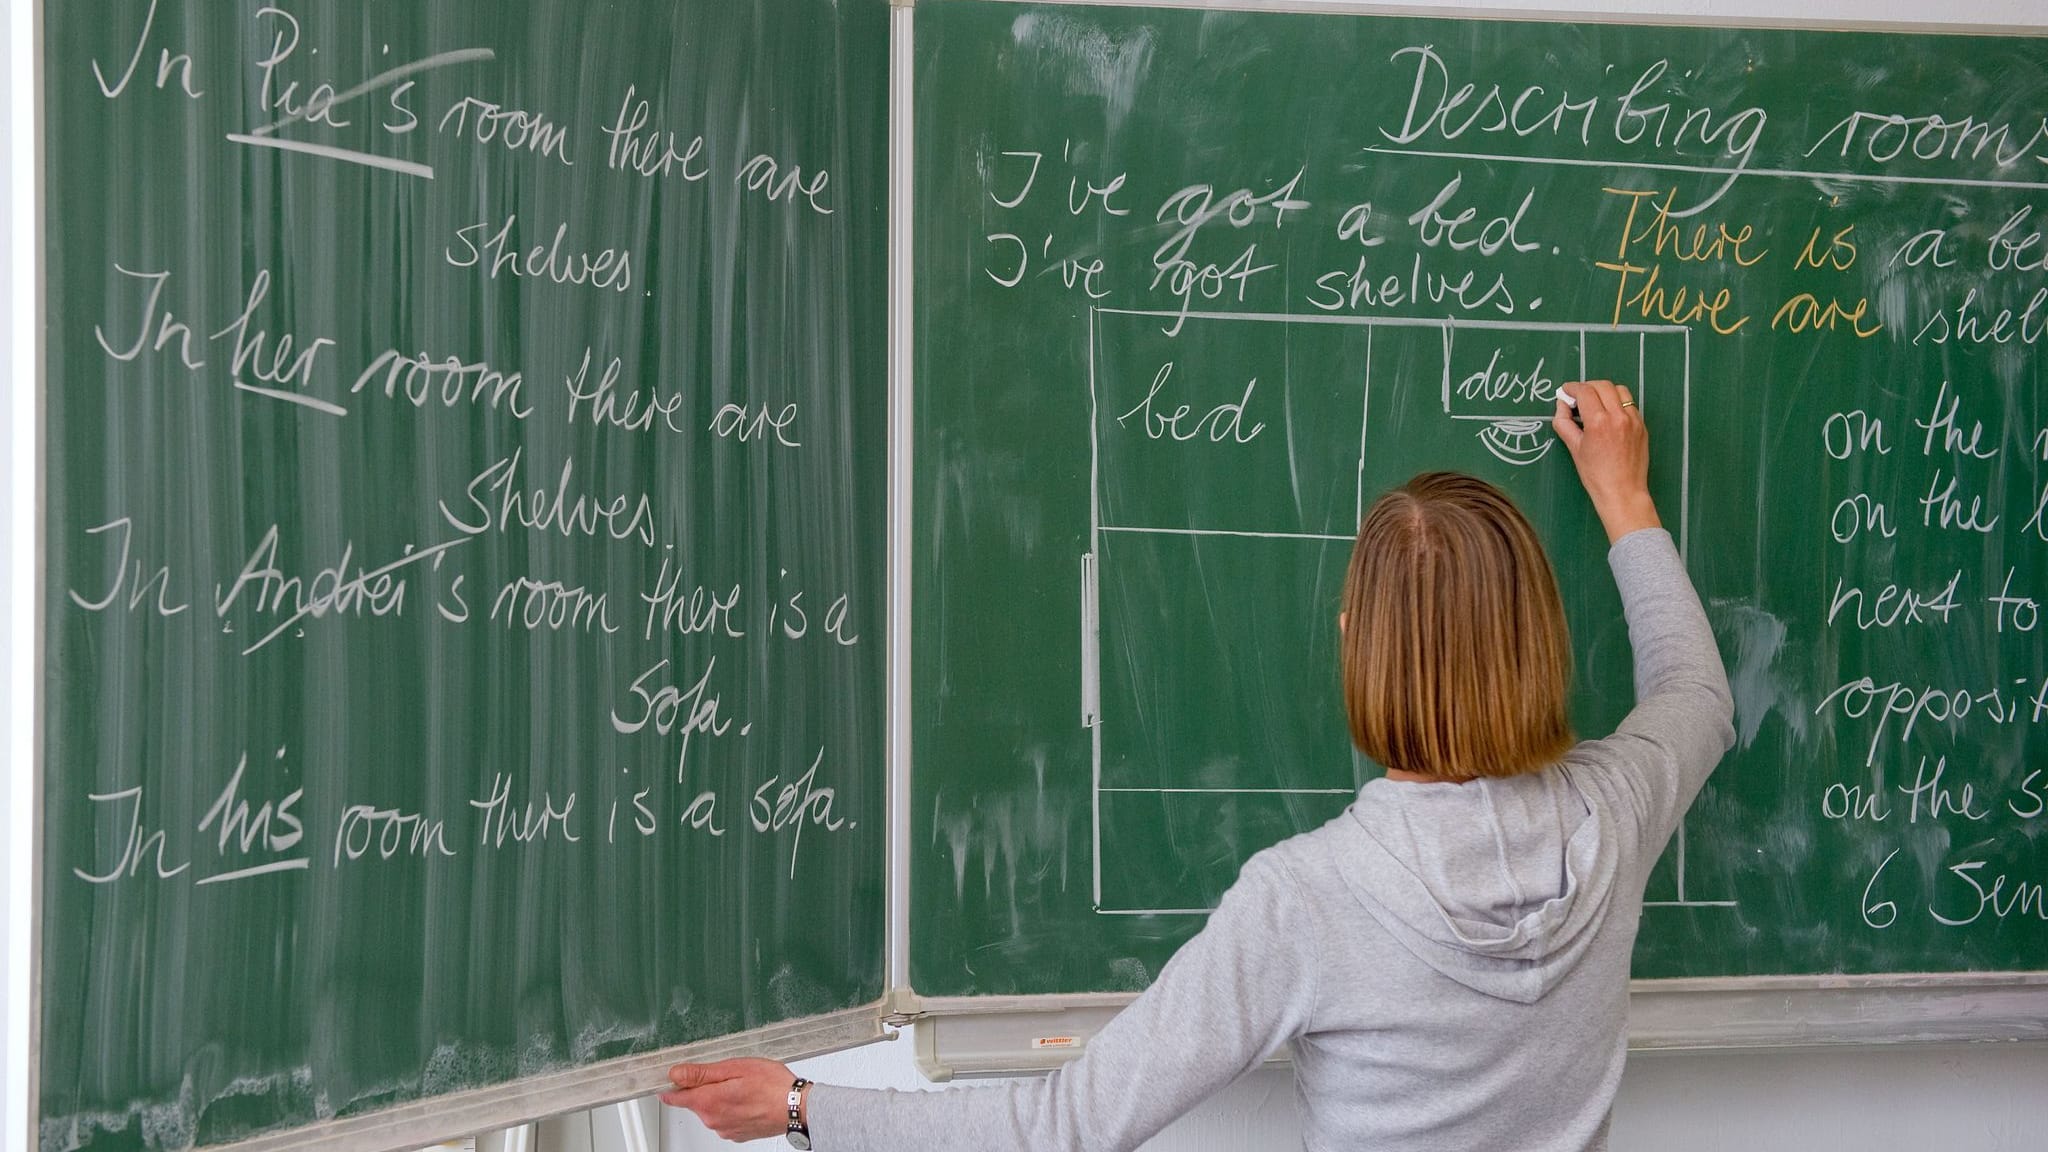 In Pia's room there are
shelves.
In her room there are
shelves.
In Andrei's room there is a
sofa.
In his room there is a sofa.
Describing rooms
I've got a bed. There is a be
I've got shelves. There are shel
bed
desk
on the
on the
next to
opposit
on the s
6 Sen
wittler